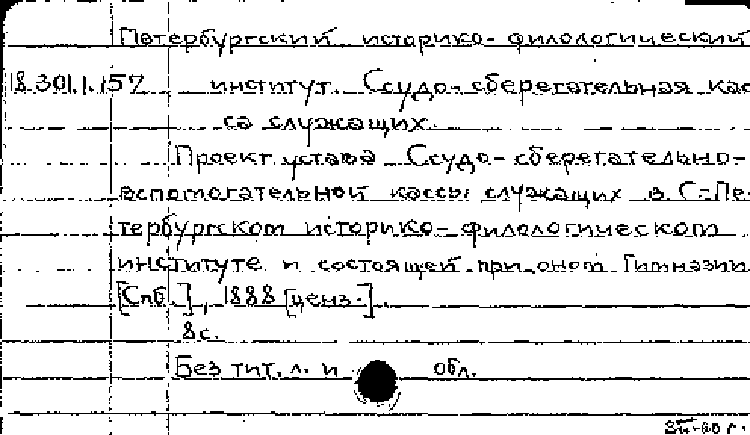 Петербургский историко-филологический
18.301.1.157 институт. Ссудо-сберегательная кас
са служащих.
Проект устава Ссудо-сберегательно-
вспомогательной кассы служащих в С.-Пе-
тербургском историко-филологическом
институте и состоящей при оном Гимназии
[Спб.], 1888 [ценз.].
8 с.
Без тит. л. и обл.